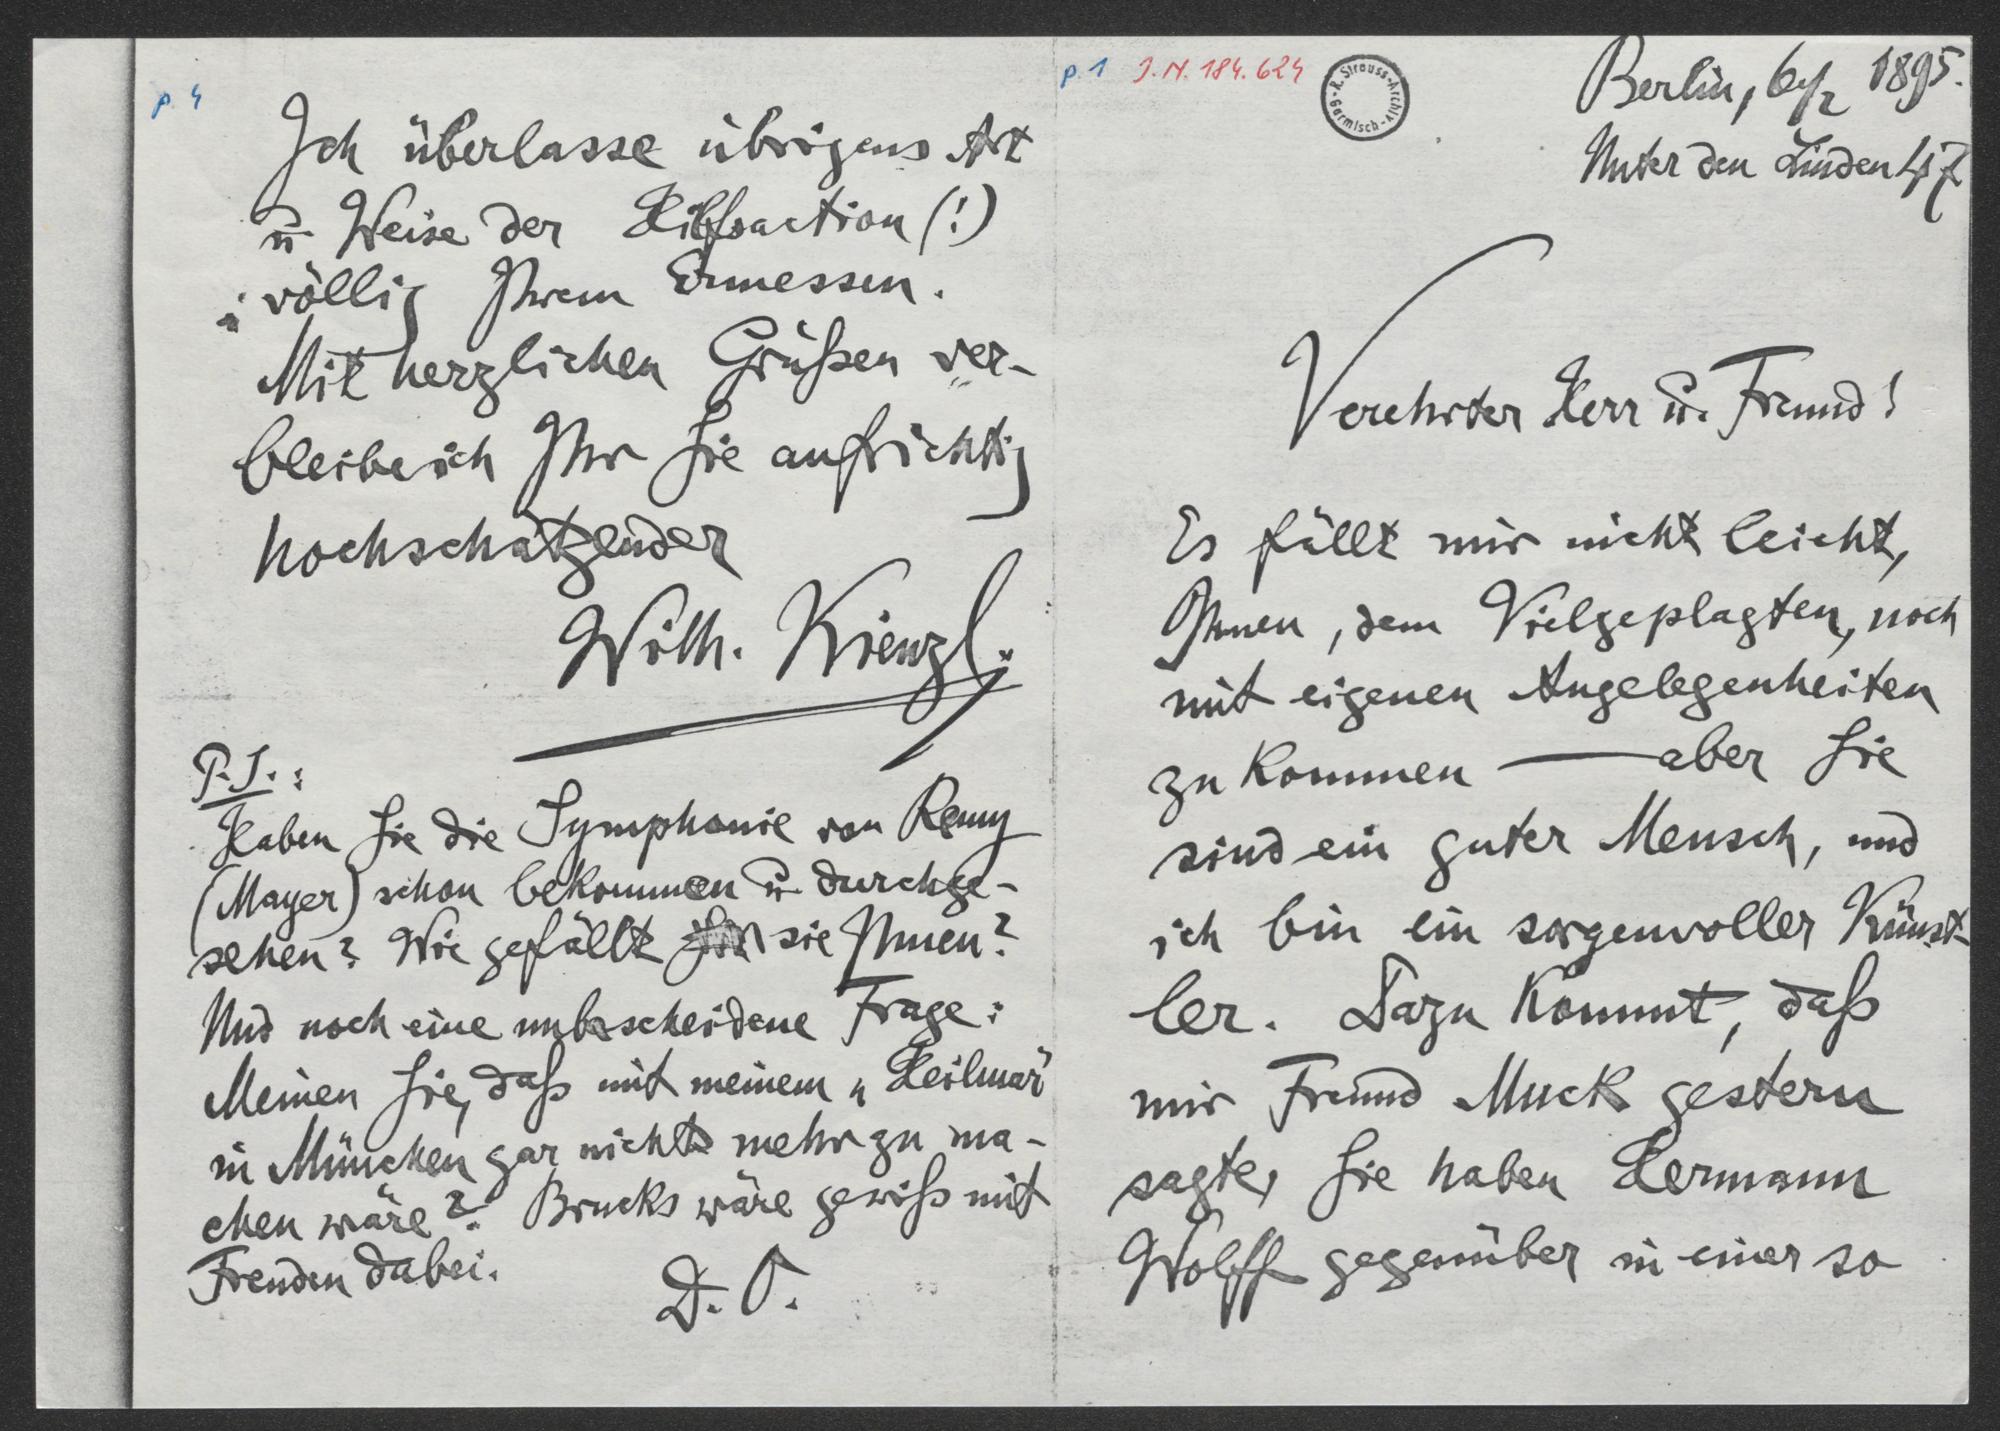 p. 4
Ich überlasse übrigens Art
u. Weise der Hilfsaction (!)
völlig Ihrem Ermessen.
Mit herzlichen Grüßen ver-
bleibe ich Ihr Sie aufrichtig
hochschätzender
Wilh. Kienzl.
P.S.:
Haben Sie die Symphonie von Remy
(Mayer) schon bekommen u. durchge-
sehen? Wie gefällt sie Ihnen?
Und noch eine unbescheidene Frage:
Meinen Sie, daß mit meinem „Heilmar"
in München gar nichts mehr zu ma-
chen wäre? Brucks wäre gewiß mit
Freuden dabei.
D. O.
p. 1 J.N. 184.624
R. Strauss-Archiv-Garmisch
Berlin, 6/2 1895.
Unter den Linden 47
Verehrter Herr u. Freund!
Es fällt mir nicht leicht,
Ihnen, dem Vielgeplagten, noch
mit eigenen Angelegenheiten
zu kommen — aber Sie
sind ein guter Mensch, und
ich bin ein sorgenvoller Künst-
ler. Dazu kommt, daß
mir Freund Muck gestern
sagte, Sie haben Hermann
Wolff gegenüber in einer so